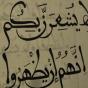 لا يشعرنّ بكم
انّهم ان يظهروا